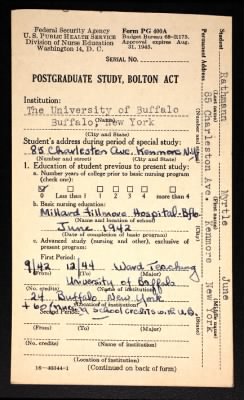 Federal Security Agency
U. S. PUBLIC HEALTH SERVICE
Division of Nurse Education
Washington 14, D. C.
Form PG 400A
Budget Bureau 68-R173.
Approval expires Aug. 31, 1945.
SERIAL NO.
POSTGRADUATE STUDY, BOLTON ACT
Institution:
The University of Buffalo
(Name)
Buffalo, New York
(City and State)
Student's address during period of special study:
85 Charleston Ave. Kenmore N.Y.
(Number and street) (City and State)
1. Education of student previous to present study:
a. Number years of college prior to basic nursing program (check one):
0 Less than 1 1 2 3 4 more than 4
b. Basic nursing education:
Millard Fillmore Hospital-Bflo
(Name and location of school)
June 1942
(Date of completion of basic program)
c. Advanced study (nursing and other), exclusive of present program:
First Period:
9/42 12/44 Ward Teaching
(From) (To) (Major)
University of Buffalo
24 Buffalo New York
+60 school credits U.B.
Second Period:
(From) (To) (Major)
(No. credits) (Name of institution)
(Location of institution)
16—40344-1 (Continued on back of form)
Student Rathmann Myrtle June
(Last name) (First name) (Middle name)
Permanent Address 85 Charleston Ave. Kenmore New York